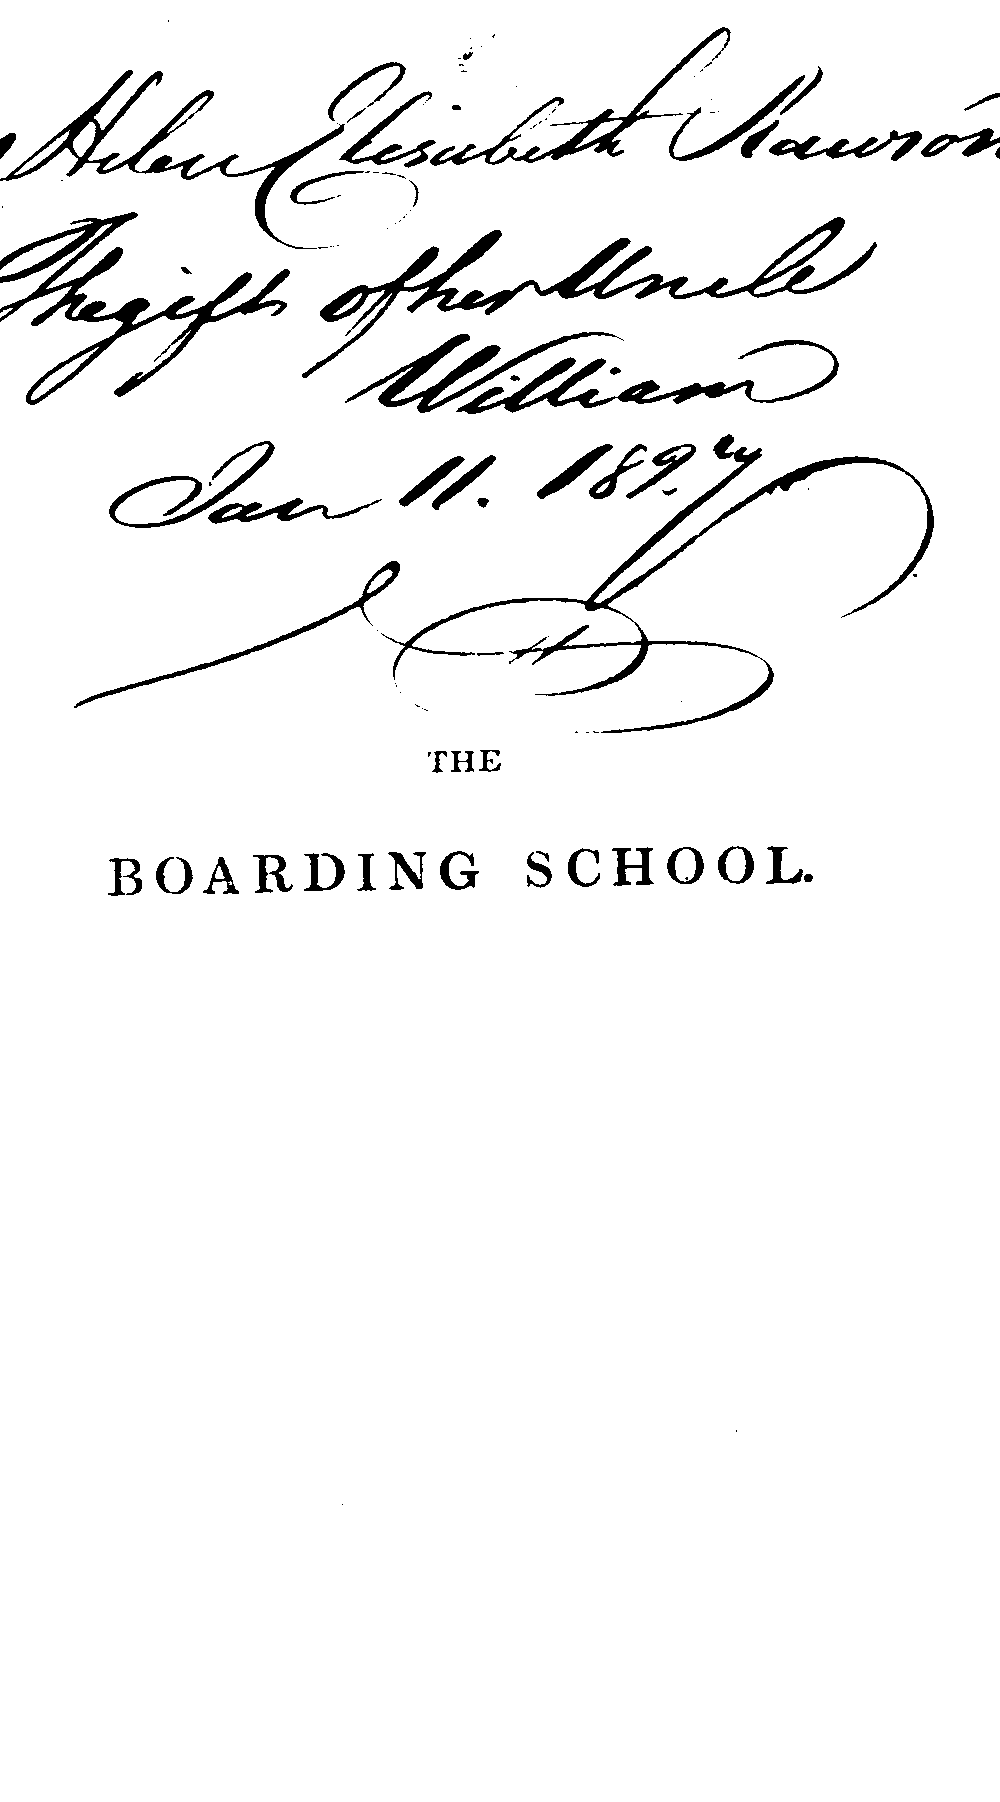 Helen Elisabeth Rawson
The gift of her Uncle
William
Jan 11.
THE
BOARDING SCHOOL.